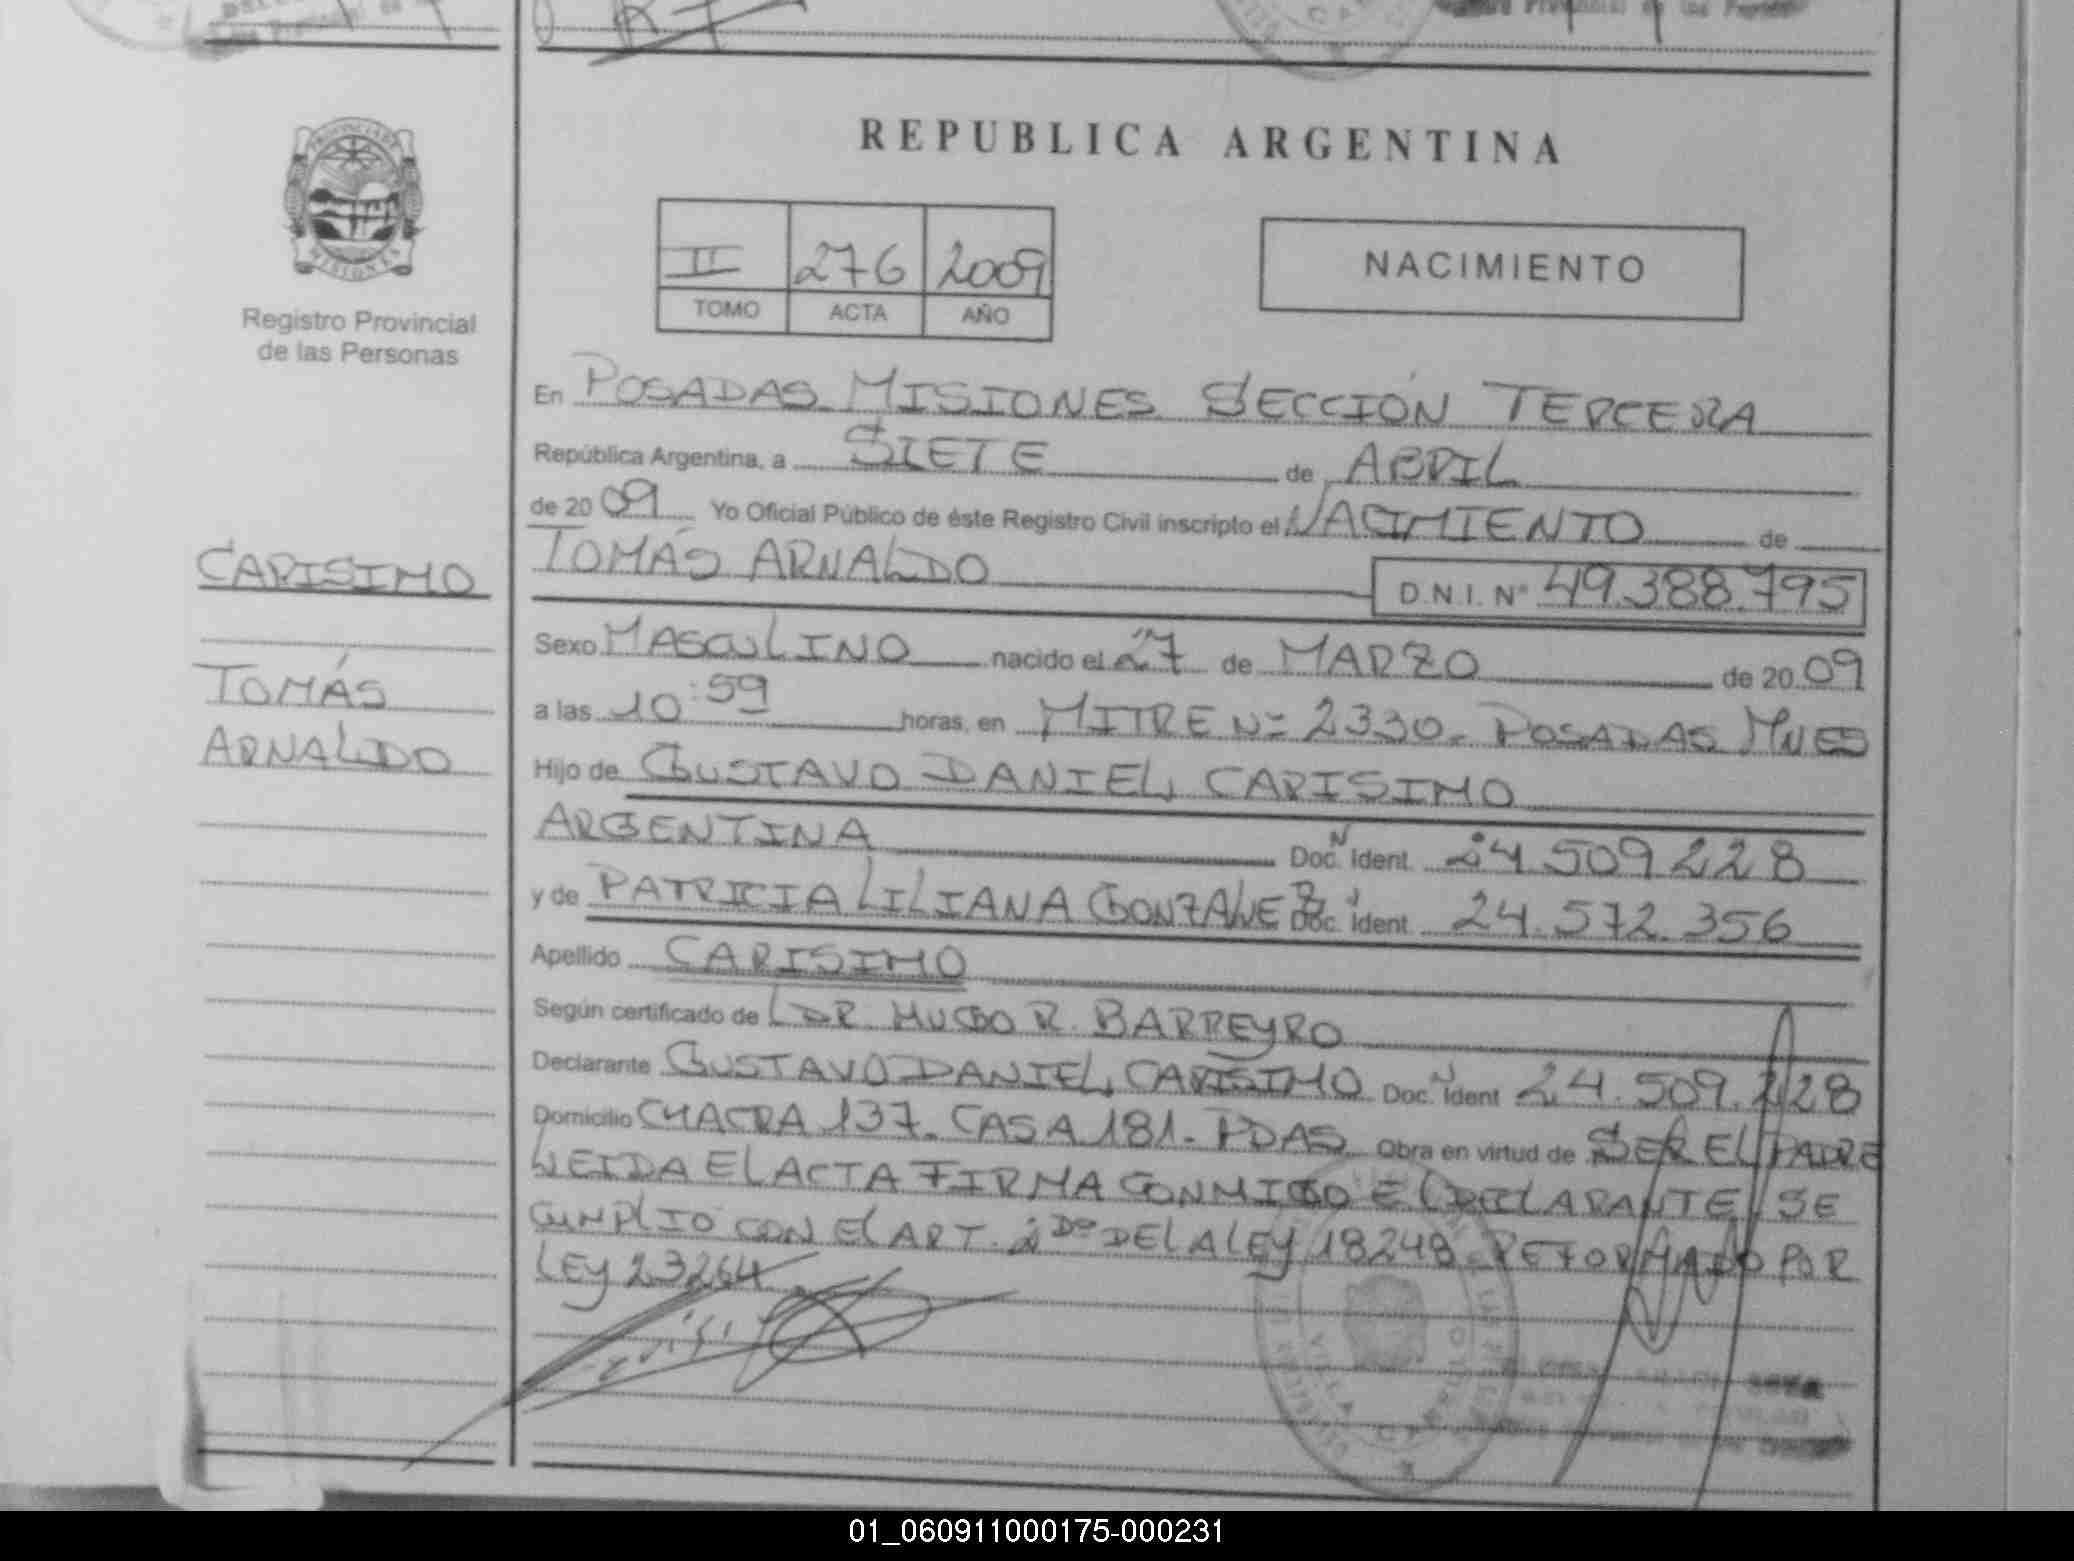 REPUBLICA ARGENTINA
PROVINCIA DE
MISIONES
Registro Provincial
de las Personas
II 276 2009
TOMO ACTA AÑO
NACIMIENTO
En POSADAS MISIONES SECCIÓN TERCERA
República Argentina, a SIETE de ABRIL
de 2009 Yo Oficial Público de éste Registro Civil inscripto el NACIMIENTO de
CARISIMO
TOMÁS
ARNALDO
TOMÁS ARNALDO D.N.I. Nº 49.388.795
Sexo MASCULINO nacido el "27 de MARZO de 2009
a las 10:59 horas, en MITRE Nº 2330. POSADAS MNES
Hijo de GUSTAVO DANIEL CARISIMO
ARGENTINA Doc. Ident. 24.509.228
y de PATRICIA LILIANA GONZALEZ Doc. Ident. 24.572.356
Apellido CARISIMO
Según certificado de DR. HUGO R. BARREYRO
Declarante GUSTAVO DANIEL CARISIMO Doc. Ident 24.509.228
Domicilio CHACRA 137. CASA 181. PDAS Obra en virtud de SER EL PADRE
LEIDA EL ACTA FIRMA CONMIGO EL DECLARANTE. SE
CUMPLIO CON EL ART. 2DO DE LA LEY 18248 REFORMADO POR
LEY 23264
01_060911000175-000231